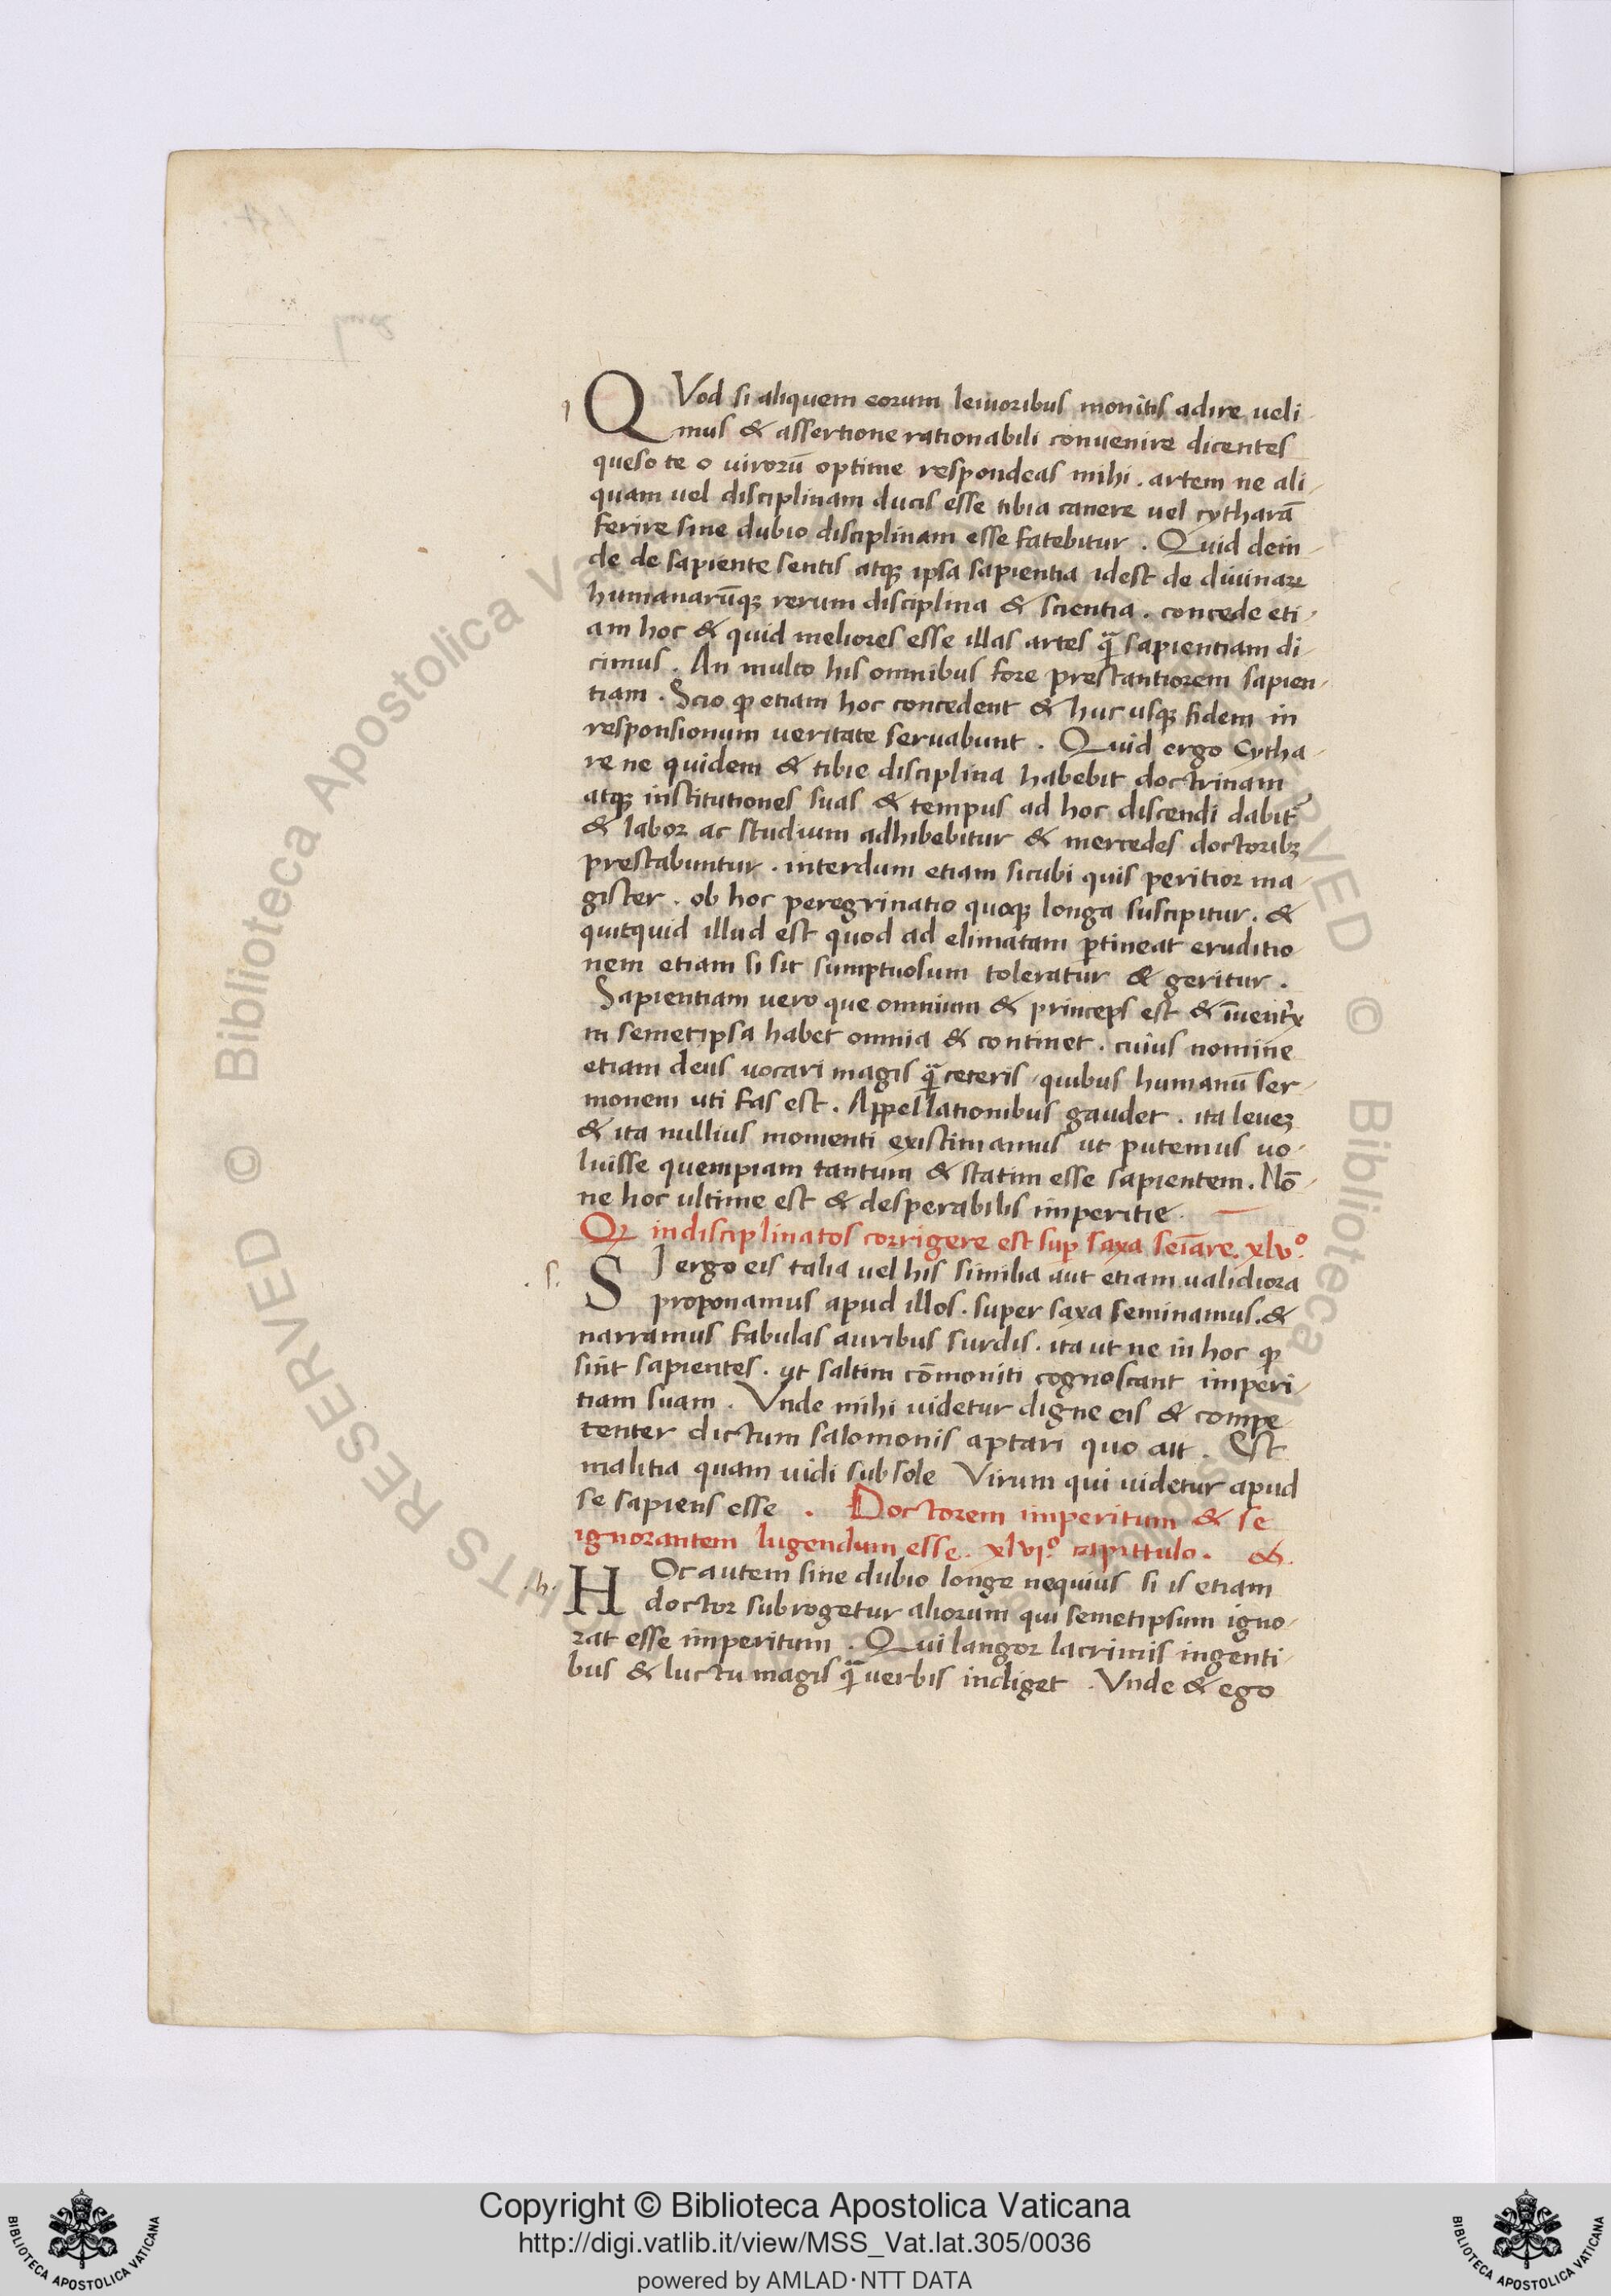 QVod si aliquem eorum leuioribus monitis adire ueli-
mus & assertione rationabili conuenire dicentes
queso te o uirorū optime respondeas mihi . artem ne ali-
quam uel disciplinam ducis esse tibia canere uel cytharā
ferire sine dubio disciplinam esse fatebitur . Quid dein-
de de sapiente sentis atqꝫ ipsa sapientia idest de diuinaꝝ
humanarūqꝫ rerum disciplina & scientia . concede eti-
am hoc & quid meliores esse illas artes q̄ sapientiam di-
cimus . An multo his omnibus fore prestantiorem sapien-
tiam . Scio ꝙ etiam hoc concedent & huc usqꝫ fidem in
responsionum ueritate seruabunt . Quid ergo Cytha-
re ne quidem & tibie disciplina habebit doctrinam
atqꝫ institutiones suas & tempus ad hoc discendi dabit᷑
& labor ac studium adhibebitur & mercedes doctoribꝫ
prestabuntur . interdum etiam sicubi quis peritior ma-
gister . ob hoc peregrinatio quoqꝫ longa suscipitur . &
quitquid illud est quod ad elimatam ꝑtineat eruditio
nem etiam si sit sumptuosum toleratur & geritur .
Sapientiam uero que omnium & princeps est & īuentͥx
in semetipsa habet omnia & continet . cuius nomine
etiam deus uocari magis q̄ ceteris . quibus humanū ser-
monem uti fas est . Appellationibus gaudet . ita leueꝫ
& ita nullius momenti existimamus ut putemus uo-
luisse quempiam tantum & statim esse sapientem . Nō-
ne hoc ultime est & desperabilis imperitie
Qꝫ indisciplinatos corrigere est suꝑ saxa seīare . xlvͦ.
.s. SI ergo eis talia uel his similia aut etiam ualidiora
proponamus apud illos . super saxa seminamus . &
narramus fabulas auribus surdis . ita ut ne in hoc ꝙ
sint sapientes . ut saltim cōmoniti cognoscant imperi-
tiam suam . Vnde mihi uidetur digne eis & compe-
tenter dictum salomonis aptari quo ait . Est
malitia quam uidi sub sole Virum qui uidetur apud
se sapiens esse . Doctorem imperitum & se
ignorantem lugendum esse . xlviͦ. capittulo .
.h. HOc autem sine dubio longe nequius si is etiam
doctor subrogetur aliorum qui semetipsum igno-
rat esse imperitum . Qui langor lacrimis ingenti-
bus & luctu magis q̄ uerbis indiget . Vnde & ego
Copyright © Biblioteca Apostolica Vaticana
http://digi.vatlib.it/view/MSS_Vat.lat.305/0036
powered by AMLAD·NTT DATA
BIBLIOTECA APOSTOLICA VATICANA
BIBLIOTECA APOSTOLICA VATICANA